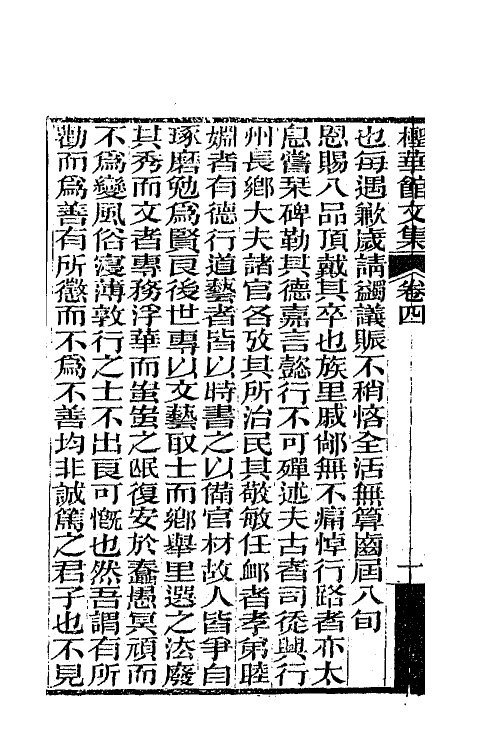 檉華館文集 卷四 一
也每遇歉歲請蠲議賑不稍悋全活無算齒屆八旬
恩賜八品頂戴其卒也族里戚鄰無不痛悼行路者亦太
息嘗琹碑勒其德嘉言懿行不可殫述夫古者司徒興行
州長鄉大夫諸官各攷其所治民其敬敏任卹者孝弟睦
婣者有德行道藝者皆以時書之以備官材故人皆爭自
琢磨勉為賢良後世專以文藝取士而鄉舉里選之法廢
其秀而文者專務浮華而蚩蚩之眠復安於蠢愚冥頑而
不為變風俗寖薄敦行之士不出良可慨也然吾謂有所
勸而為善有所懲而不為不善均非誠篤之君子也不見